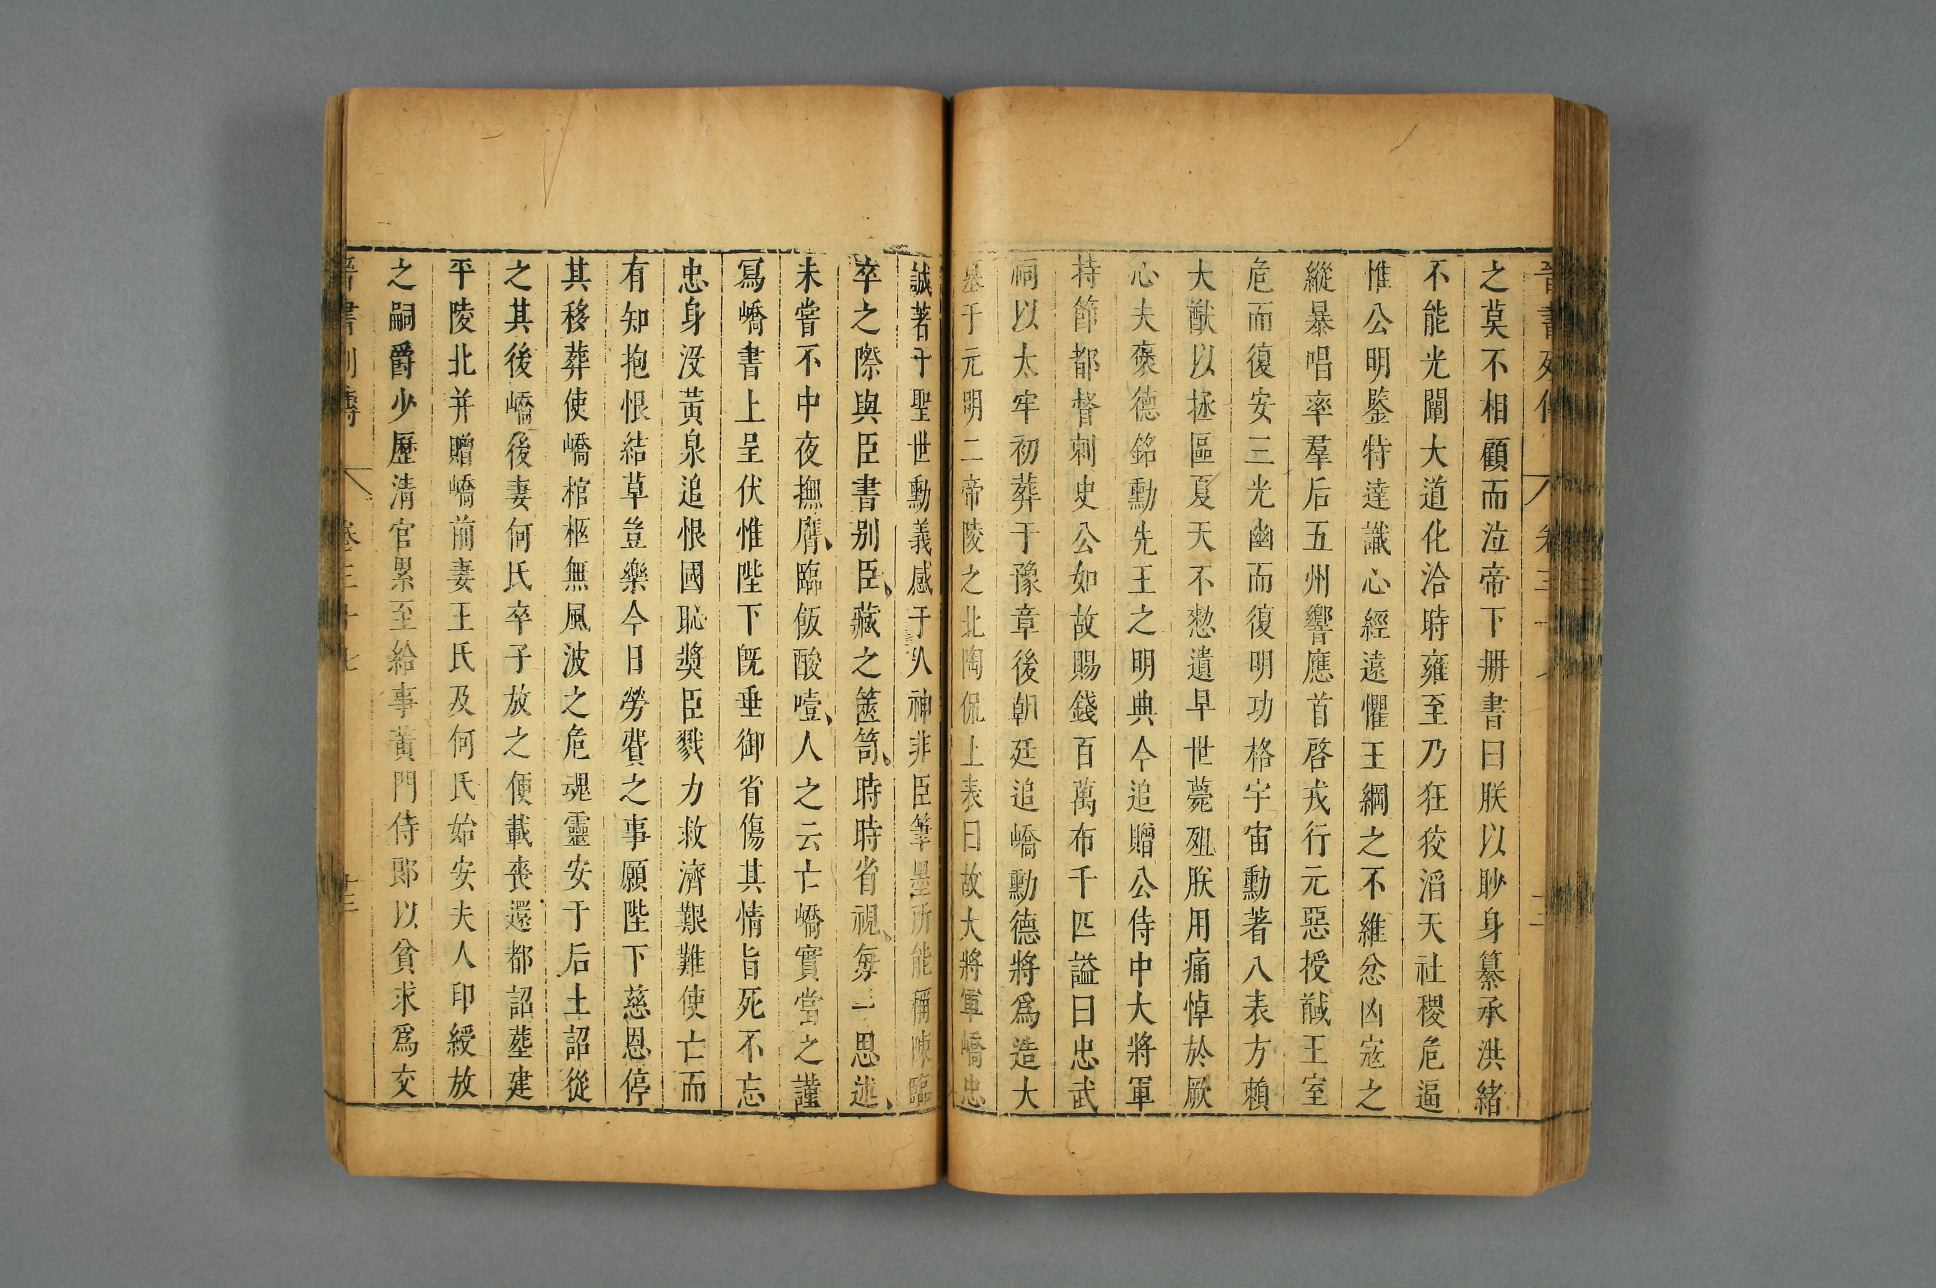 晉書列傳 卷三十七 十二
之莫不相顧而泣帝下册書曰朕以眇身纂承洪緒
不能光闡大道化洽時雍至乃狂狡滔天社稷危逼
惟公明鑒特達識心經遠懼王綱之不維忿凶寇之
縱暴唱率羣后五州響應首啓戎行元惡授馘王室
危而復安三光幽而復明功格宇宙勳著八表方賴
大猷以拯區夏天不憗遺早世薨殂朕用痛悼於厥
心夫褒德銘勳先王之明典今追贈公侍中大將軍
持節都督刺史公如故賜錢百萬布千匹謚曰忠武
祠以太牢初葬于豫章後朝廷追嶠勳德將爲造大
墓于元明二帝陵之北陶侃上表曰故大將軍嶠忠
誠著于聖世勳義感于人神非臣筆墨所能稱陳臨
卒之際與臣書别臣藏之篋笥時時省視每一思述
未嘗不中夜撫膺臨飯酸噎人之云亡嶠實當之謹
寫嶠書上呈伏惟陛下旣垂御省傷其情旨死不忘
忠身沒黃泉追恨國恥奬臣戮力救濟艱難使亡而
有知抱恨結草豈樂今日勞費之事願陛下慈恩停
其移葬使嶠棺柩無風波之危魂靈安于后土詔從
之其後嶠後妻何氏卒子放之便載喪還都詔葬建
平陵北并贈嶠前妻王氏及何氏始安夫人印綬放
之嗣爵少歷清官累至給事黃門侍郎以貧求爲交
晉書列傳 卷三十七 十三